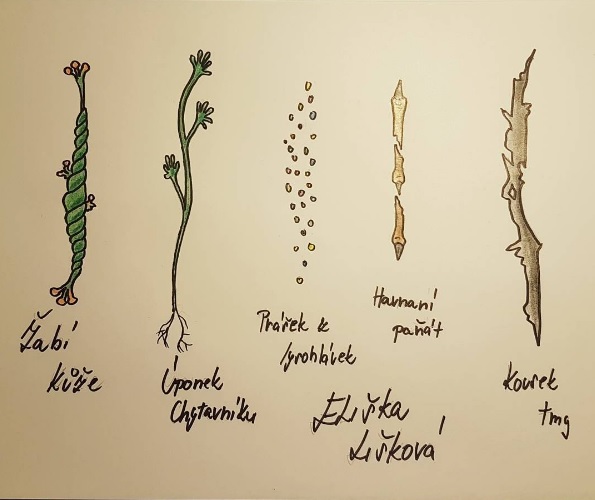 Žabí
kůže
Úponek
Chytavníku
Prášek z
lyrohlávek
Havraní
pařát
Kousek
tmy
Eliška
Lišková